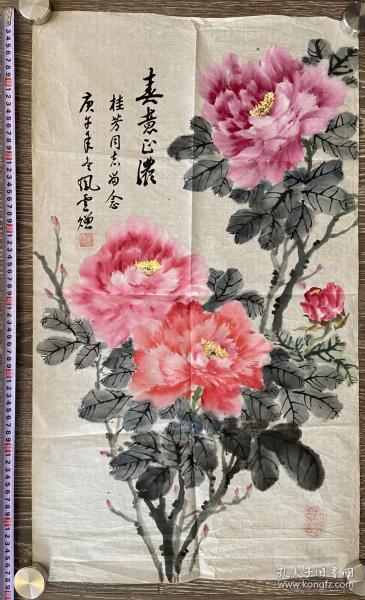 春意正濃
桂芳同志留念
庚午年冬鳳雲
孔夫子旧书网
www.kongfz.com